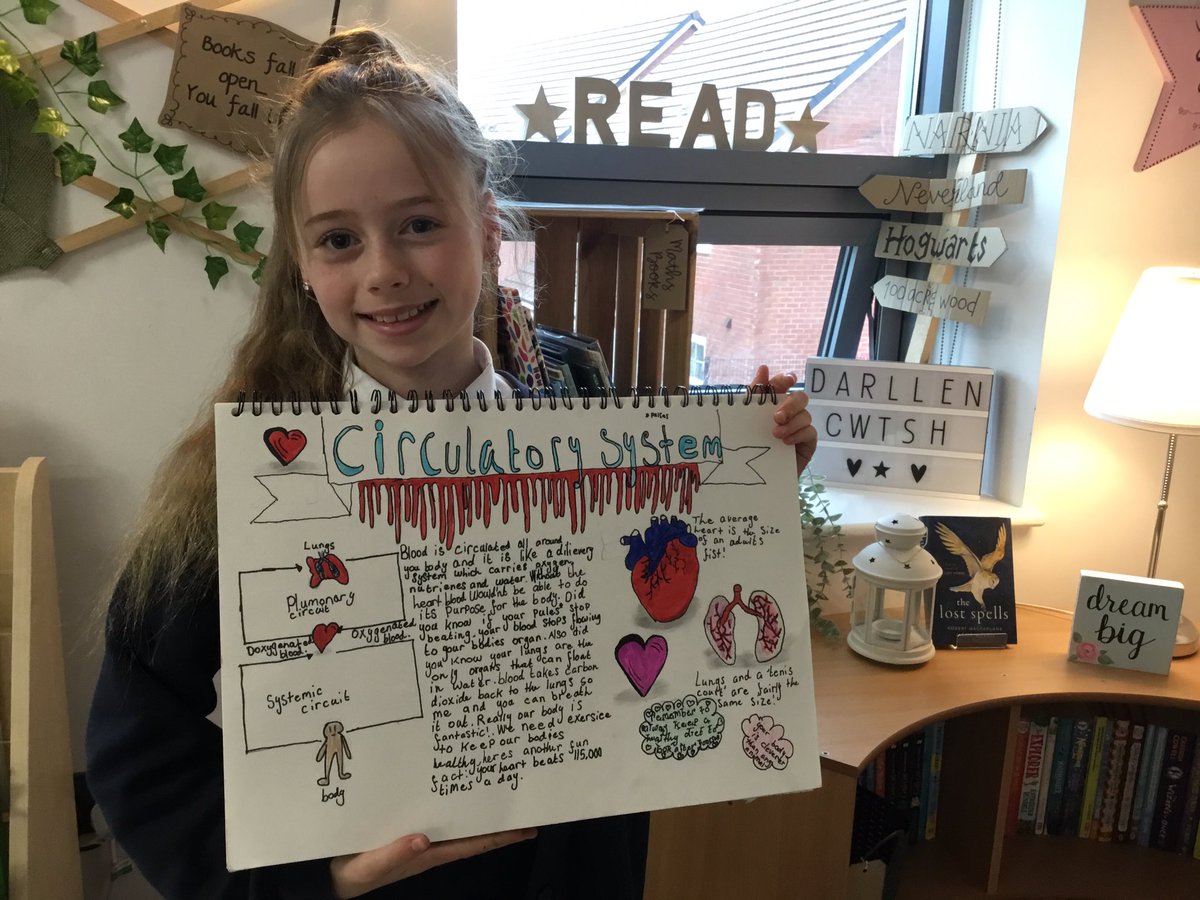 Books fall
open
You fall in
READ
NARNIA
Neverland
Hogwarts
100 acre wood
Maths
Books
DARLLEN
CWTSH
the
lost spells
ROBERT MACFARLANE
dream
big
Circulatory System
Lungs
Plumonary
circuit
Doxygenated
blood.
oxygenated
blood.
Systemic
circuit
body
Blood is circulated all around
you body and it is like a dilievery
system which carries oxygen,
nutrienes and water. Without the
heart blood wouldn't be able to do
its purpose for the body. Did
you know if your pules stop
beating, your blood stops flowing
to your bodies organ. Also did
you know your lungs are the
only organs that can float
in water. blood takes carbon
dioxide back to the lungs so
me and you can breath
it out. Really our body is
fantastic!. We need exersice
to keep our bodies
healthy, heres another fun
fact: your heart beats 115,000
times a day.
The average
heart is the size
of an adults
fist!
Lungs and a 'tenis
court' are fairly the
same size!
Remember to
alway keep a
healthy diet